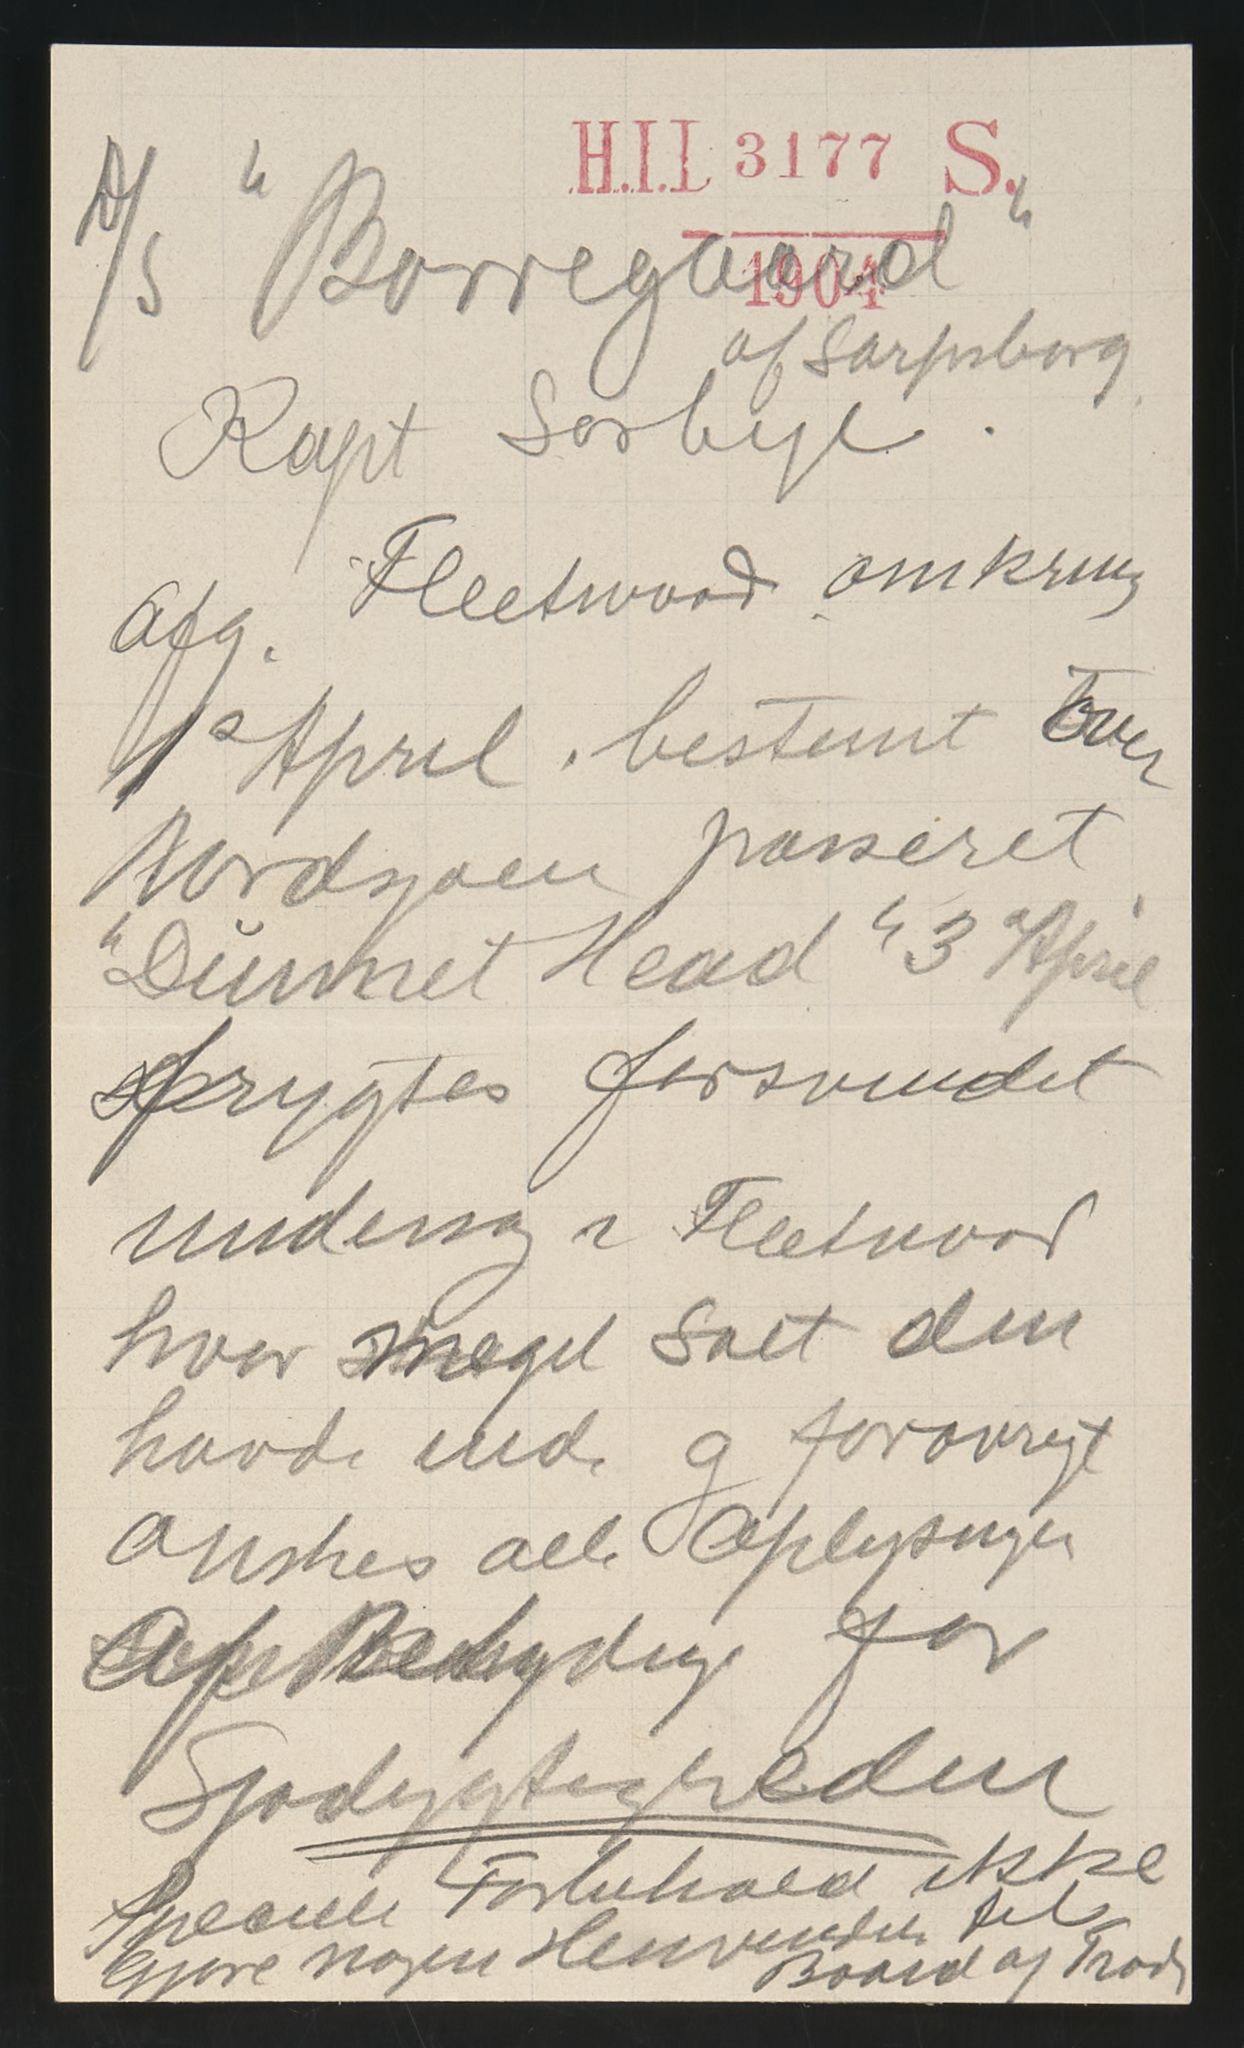 H.I.L 3177 S.
1904
D/S "Borregaard"
af Sarpsborg.
Kapt Sørbye.
Afg. Fleetwood omkring
1ste April. bestemt over
Nordsjøen passeret
"Dunnet Head" 3 April
frygtes forsvundet
undersøg i Fleetwood
hvor meget Salt den
havde inde og forøvrigt
ønskes alle Oplysninger
af Betydning for
Sjødygtigheden
Specielt Forbehold ikke
gjøre nogen Henvendelse til
Board of Trade